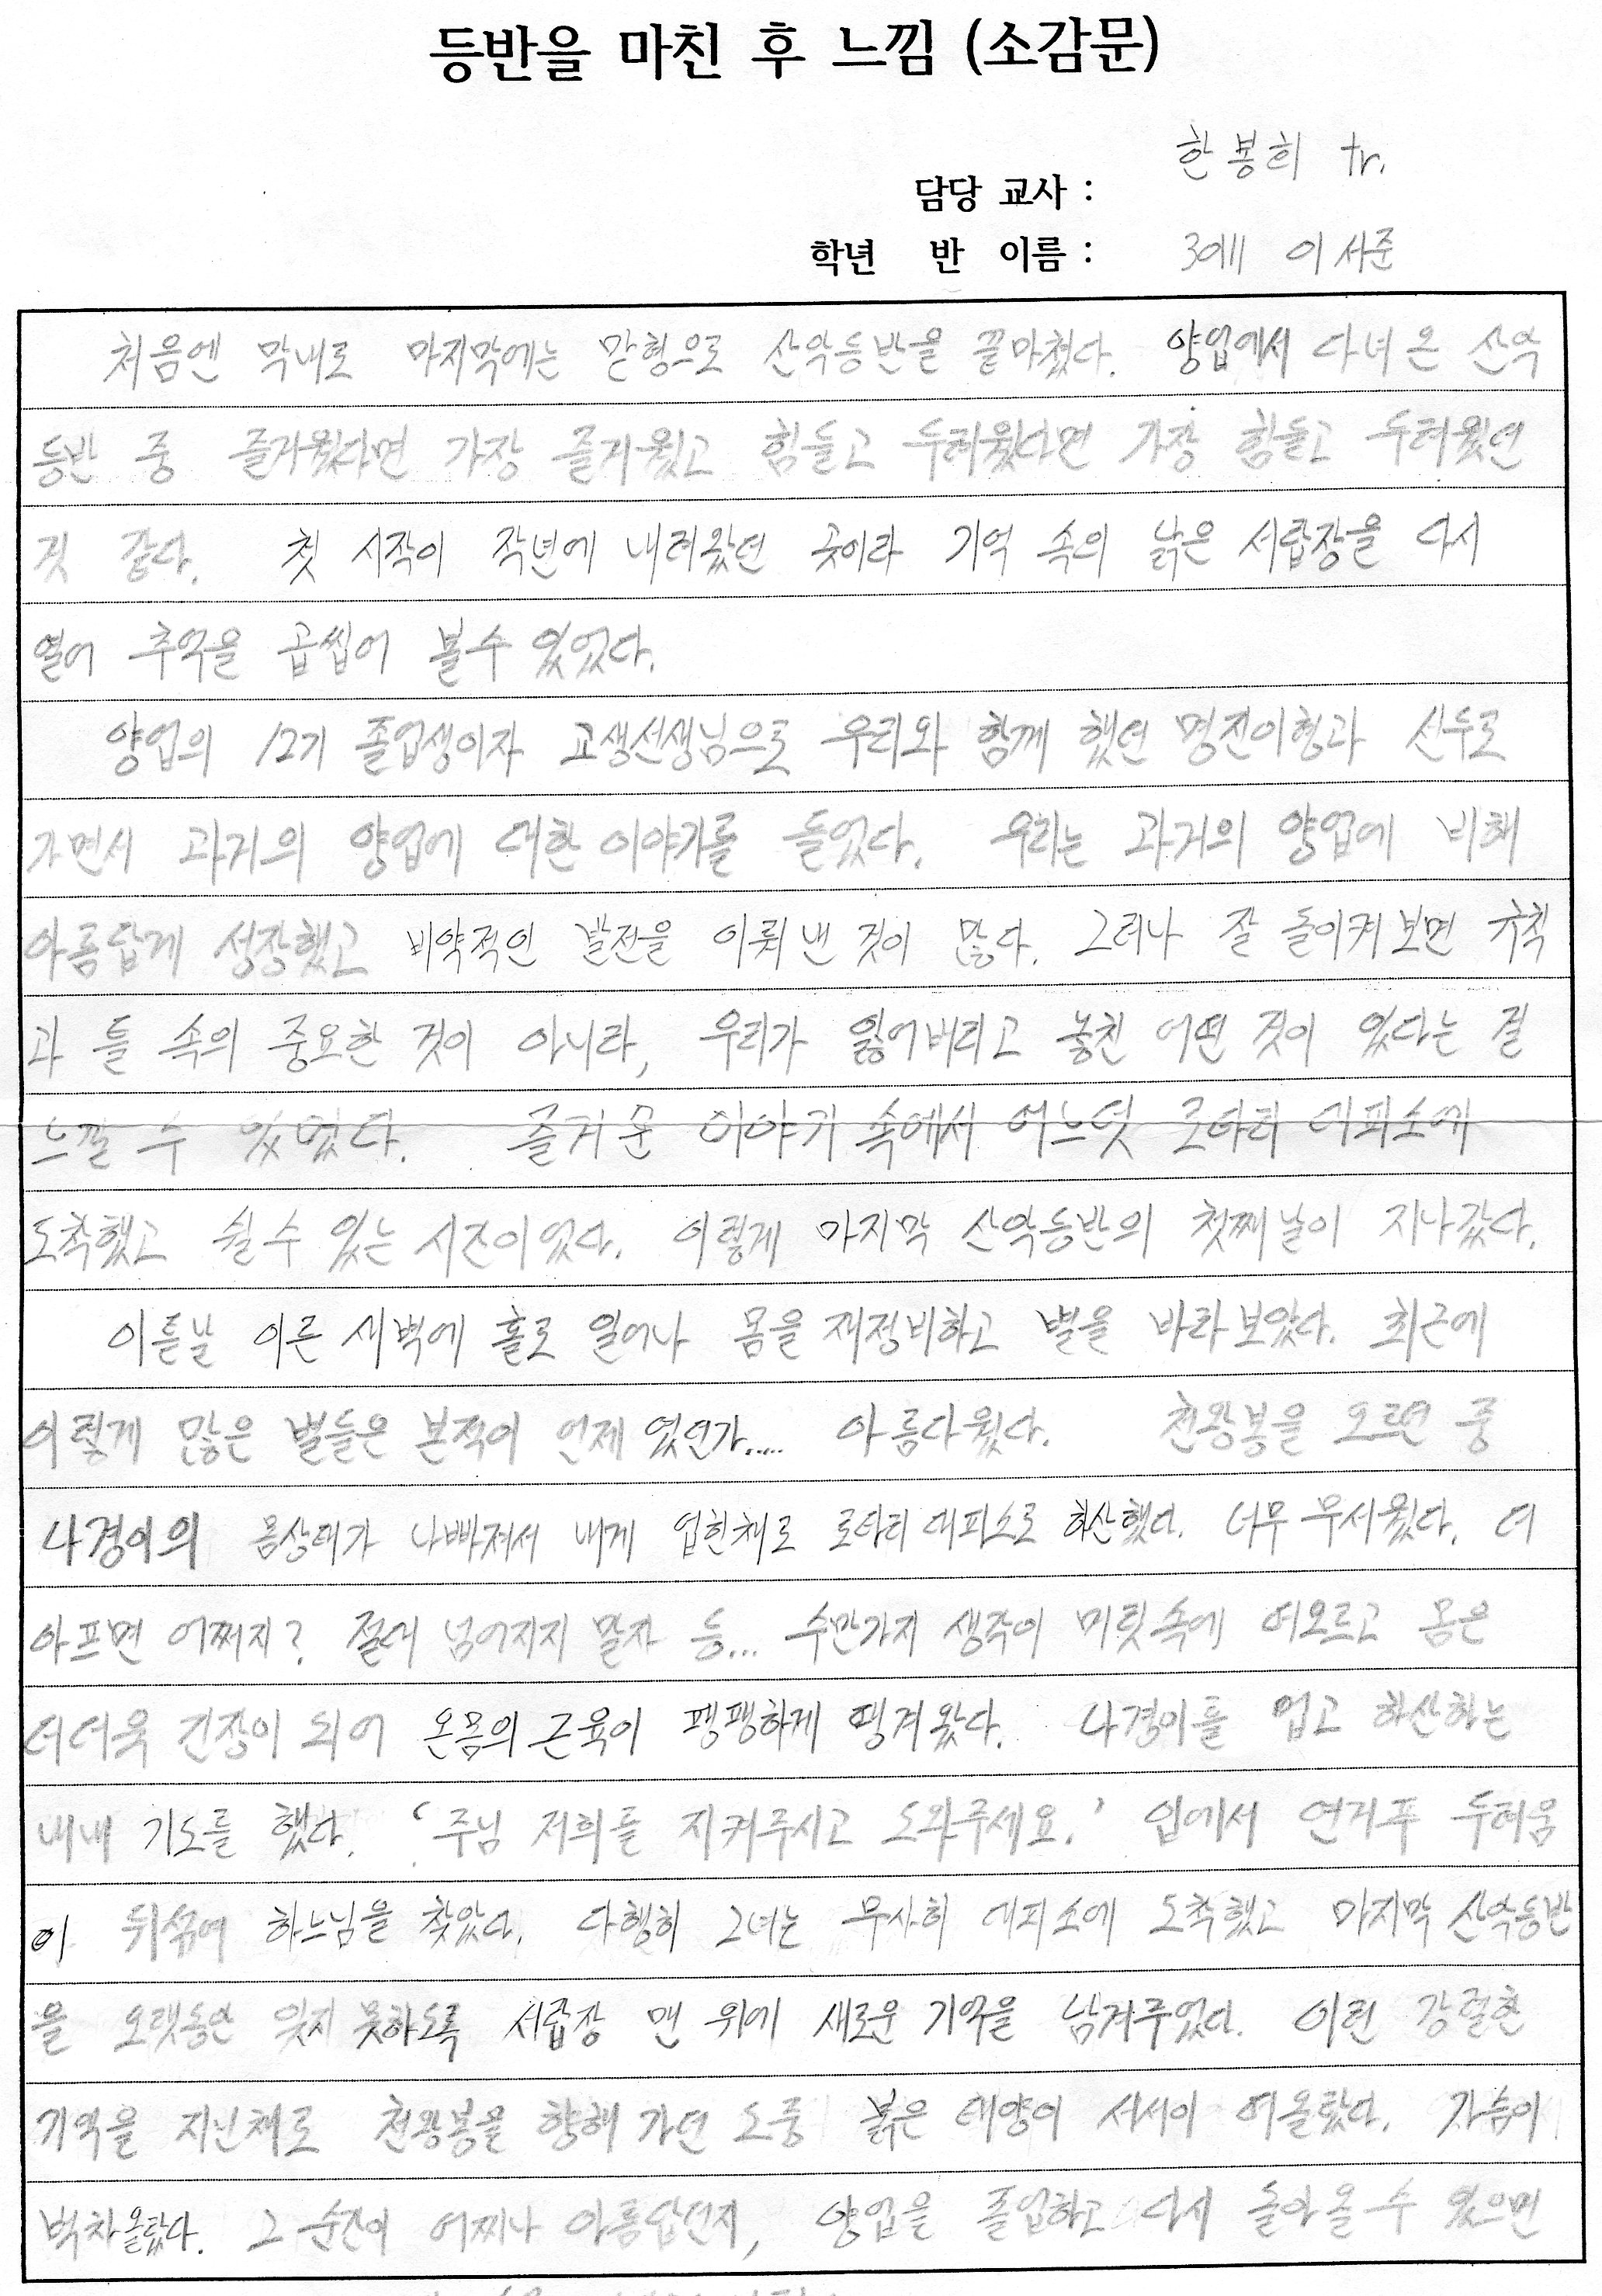 등반을 마친 후 느낌 (소감문)
담당 교사 : 한봉희 tr.
학년 반 이름 : 3에11 이서준
처음엔 막내로 마지막에는 맏형으로 산악등반을 끝마쳤다. 양업에서 다녀온 산악
등반 중 즐거웠다면 가장 즐거웠고 힘들고 두려웠다면 가장 힘들고 두려웠던
것 같다. 첫 시작이 작년에 내려왔던 곳이라 기억 속의 낡은 서랍장을 다시
열어 추억을 곱씹어 볼수 있었다.
양업의 12기 졸업생이자 고생선생님으로 우리와 함께 했던 명진이형과 선두로
가면서 과거의 양업에 대한 이야기를 들었다. 우리는 과거의 양업에 비해
아름답게 성장했고 비약적인 발전을 이뤄낸 것이 많다. 그러나 잘 돌이켜보면 규칙
과 틀 속의 중요한 것이 아니라, 우리가 잃어버리고 놓친 어떤 것이 있다는 걸
느낄 수 있었다. 즐거운 이야기 속에서 어느덧 로타리 대피소에
도착했고 쉴 수 있는 시간이었다. 이렇게 마지막 산악등반의 첫째날이 지나갔다.
이튿날 이른 새벽에 홀로 일어나 몸을 재정비하고 별을 바라보았다. 최근에
이렇게 많은 별들은 본적이 언제 였던가..... 아름다웠다. 천왕봉을 오르던 중
나경이의 몸상태가 나빠져서 내게 업힌채로 로타리대피소로 하산했다. 너무 무서웠다. 더
아프면 어쩌지? 절대 넘어지지 말자 등... 수만가지 생각이 머릿속에 떠오르고 몸은
더더욱 긴장이 되어 온몸의 근육이 팽팽하게 땡겨왔다. 나경이를 업고 하산하는
내내 기도를 했다. '주님 저희를 지켜주시고 도와주세요.' 입에서 연거푸 두려움
이 뒤섞여 하느님을 찾았다. 다행히 그녀는 무사히 대피소에 도착했고 마지막 산악등반
을 오랫동안 잊지 못하도록 서랍장 맨 위에 새로운 기억을 남겨주었다. 이런 강렬한
기억을 지닌채로 천왕봉을 향해 가던 도중 붉은 태양이 서서이 떠올랐다. 가슴이
벅차올랐다. 그 순간이 어찌나 아름답던지, 양업을 졸업하고 다시 돌아올 수 있으면